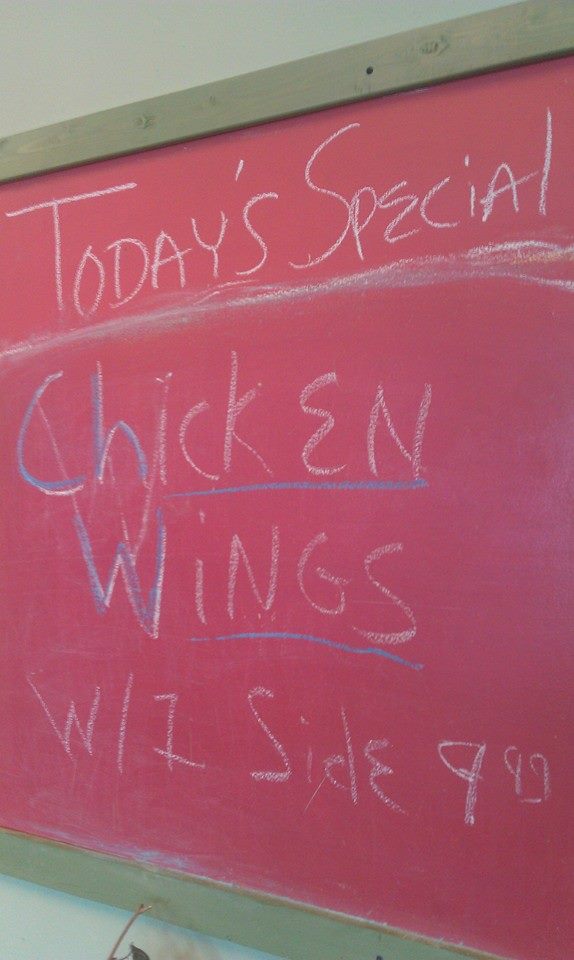 TODAY'S SPECIAL
ChICKEN
WiNGS
W/1 Side 9